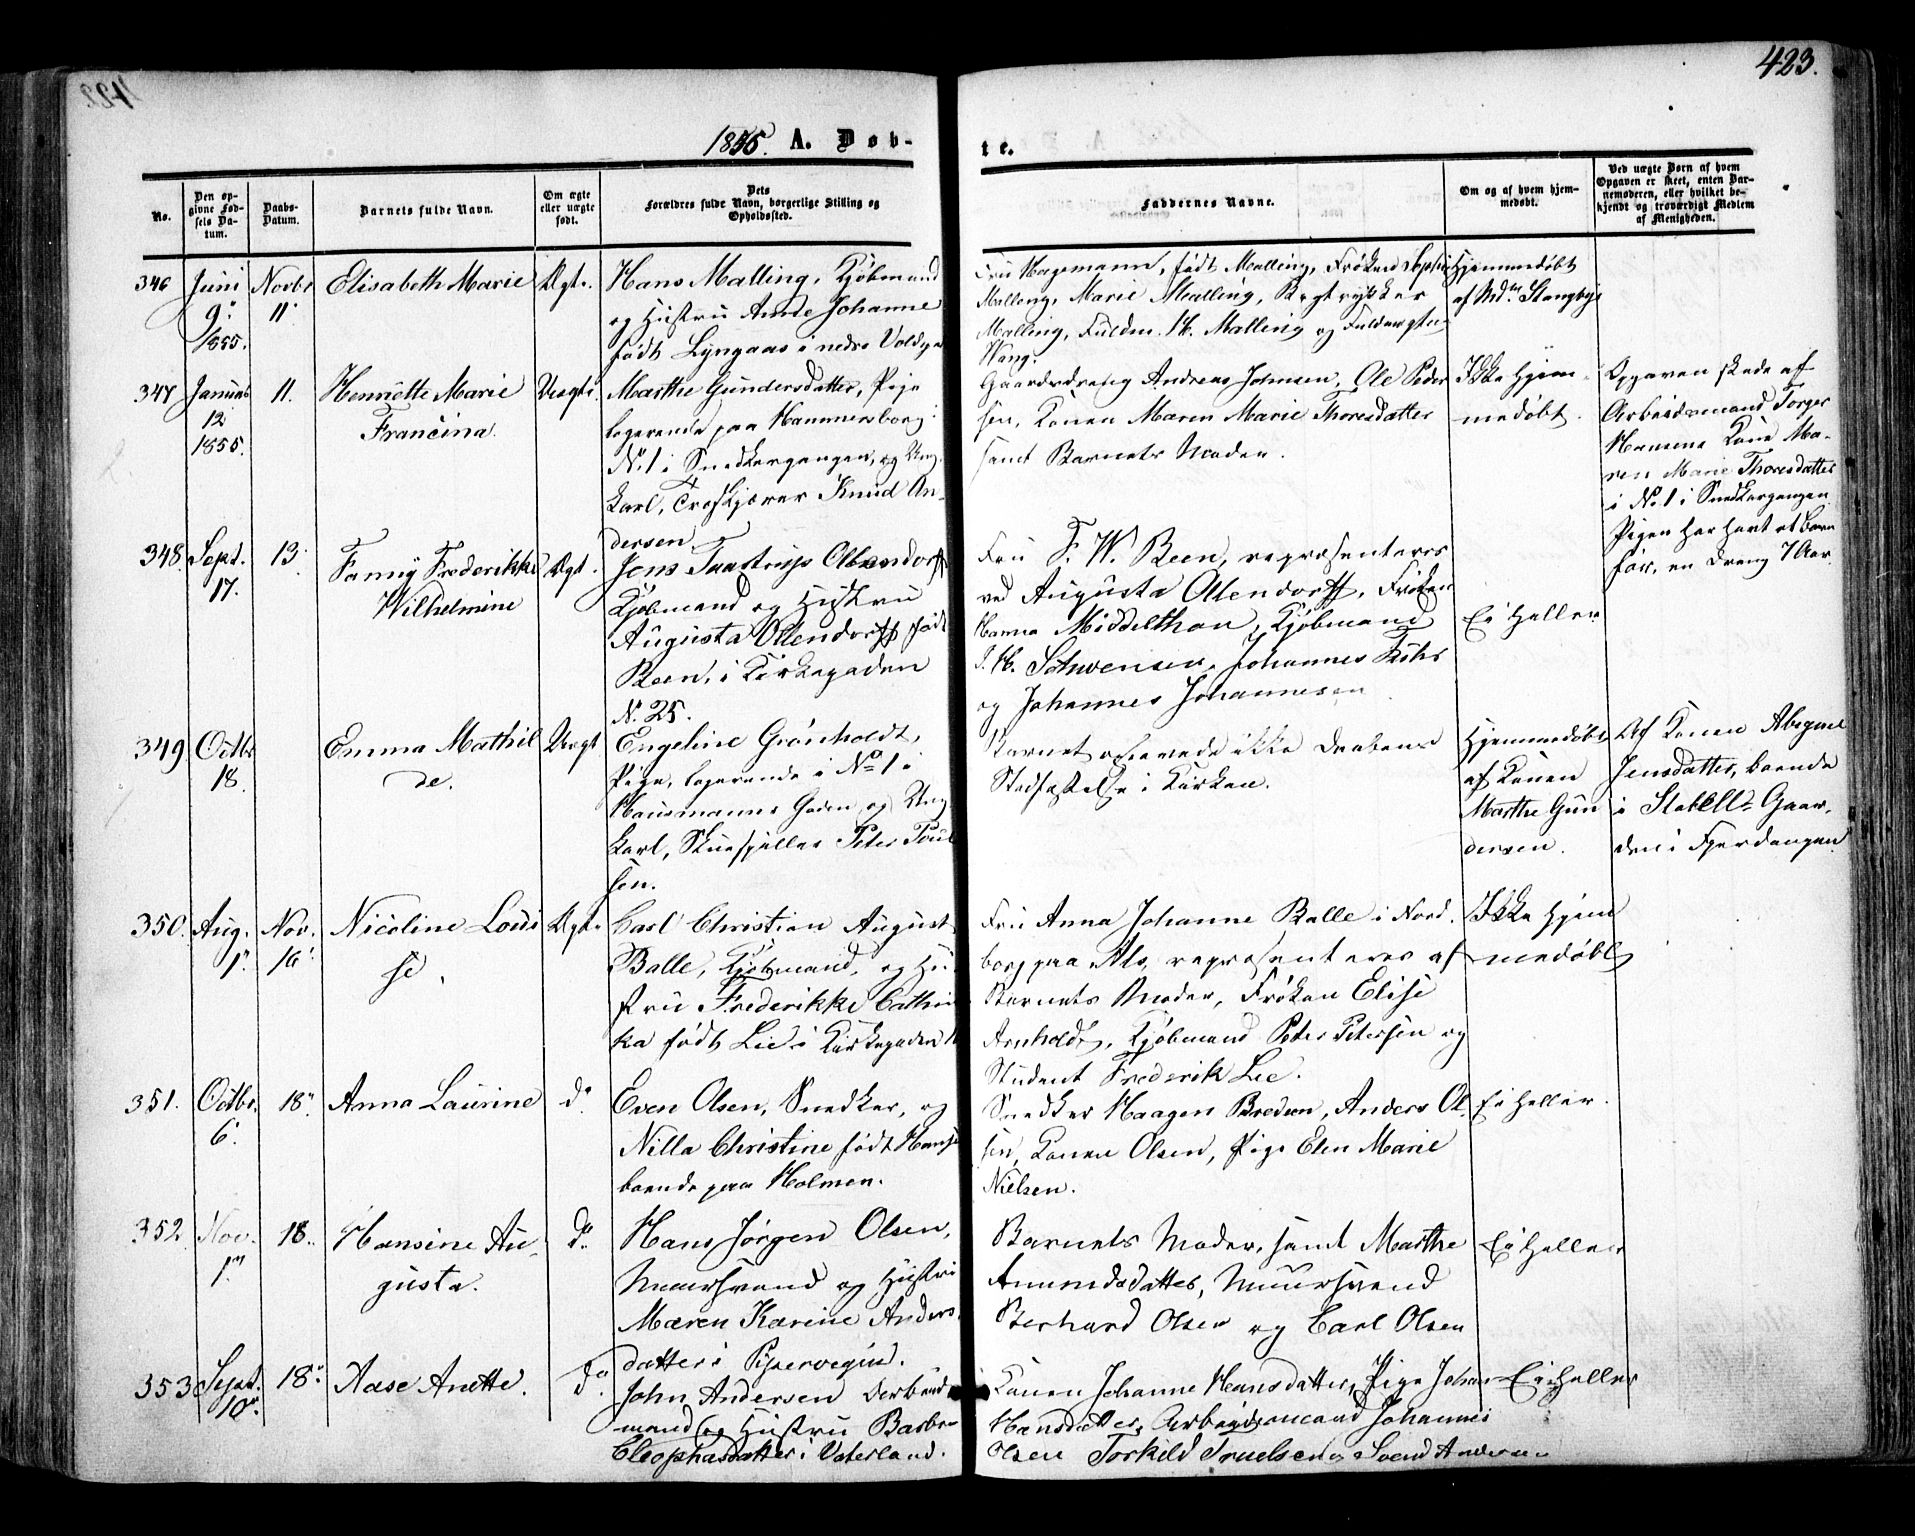 423.
1855. A. Døb-
te.
No.
Den op-
givne Fød-
sels Da-
tum.
Daabs-
Datum.
Barnets fulde Navn.
Om ægte
eller uægte
født.
Dets
Forældres fulde Navn, borgerlige Stilling og
Opholdssted.
Faddernes Navne.
Om og af hvem hjem-
medøbt.
Ved uægte Børn af hvem
Opgaven er skeet, enten Bar-
nemoderen, eller hvilket be-
kjendt og troværdigt Medlem
af Menigheden.
346
Juni
9.
1855.
Novbr
11.
Elisabeth Marie
Ægt.
Hans Malling, Kjøbmand
og Hustru Anne Johanne
født Lyngaas i nedre Voldga
Fru Hagemann, født Malling, Frøken Sophie
Malling, Marie Malling, Bogtrykker
Malling, Fuldm. H. Malling og Fuldmægtig
Wang.
Hjemmedøbt
af Md. Stangbye
347
Januar
12
1855.
11.
Henriette Marie
Francina.
Uægt.
Marthe Gundersdatter, Pige
logerende paa Hammersborg
No. 1 i Snedkergangen, og Ung-
karl, Træskjærer Knud An-
dersen
Gaardsdreng Andreas Johnsen, Ole Peder
sen, Konen Maren Marie Thoresdatter
samt Barnets Moder.
Ikke hjem-
medøbt.
Opgaven skede af
Arbeidsmand Torger
Hansens Kone Ma-
ren Marie Thoresdatter
i No. 1 i Snedkergangen
Pigen har havt et Barn
før, en Dreng 7 Aar.
348.
Sept.
17.
13.
Fanny Frederikke
Wilhelmine
Ægt.
Jens Taastrup Ollendorff
Kjøbmand og Hustru
Augusta Ollendorff født
Been, i Kirkegaden
No. 25.
Fru F. W. Been, repræsenteres
ved Augusta Ollendorff, Frøken
Hanna Middelthon, Kjøbmand
J. H. Schwensen, Johannes
og Johannes Johannesen
Ei heller
349.
Octbr
18.
Emma Mathil
de.
Uægt
Engeline Grönholdt,
Pige, logerende i No 1 i
Hausmanns Gaden og Ung
karl, Skuespiller Peter Poul
sen.
Barnet ikke Daabens
Stadfæstelse i Kirken.
Hjemmedøbt
af Konen
Marthe Gun
dersen.
Af Konen Abigael
Jensdatter, boende
i Stabells Gaar-
den i Fjerdingen
350.
Aug.
1.
Nov.
16.
Nicoline Loui
se.
Ægt.
Carl Christian August
Balle, Kjøbmand, og Hu-
stru Frederikke Cathin
ka født Lie i Kirkegaden
Fru Anna Johanne Balle i Nord-
borg paa Als, repræsenteres af
Barnets Moder, Frøken Elise
Arnholdt, Kjøbmand Peter Petersen og
Student Frederik Lie.
Ikke hjem
medøbt
351.
Octbr.
6.
18.
Anna Laurine
do.
Even Olsen, Snedker, og
Nilla Christine født Hans
boende paa Holmen.
Snedker Haagen Bredsen, Anders Ol-
sen, Konen Olsen, Pige Elen Marie
Nielsen.
Ei heller.
352.
Nov.
1.
18.
Hansine Au-
gusta.
do.
Hans Jørgen Olsen,
Muursvend og Hustru
Maren Karine Anders-
datter i Pipervigen.
Barnets Moder, samt Marthe
Amundsdatter, Muursvend
Berhard Olsen og Carl Olsen
Ei heller
353
Sept.
10.
18.
Aase Anette.
do.
John Andersen
mand og Hustru Barbro
Cleophasdatter i Vaterland.
Konen Johanne Hansdatter, Pige Johan
Hansdatter, Arbeidsmand Johannes
Olsen Torkild Truelsen og Svend Andersen
Ei heller